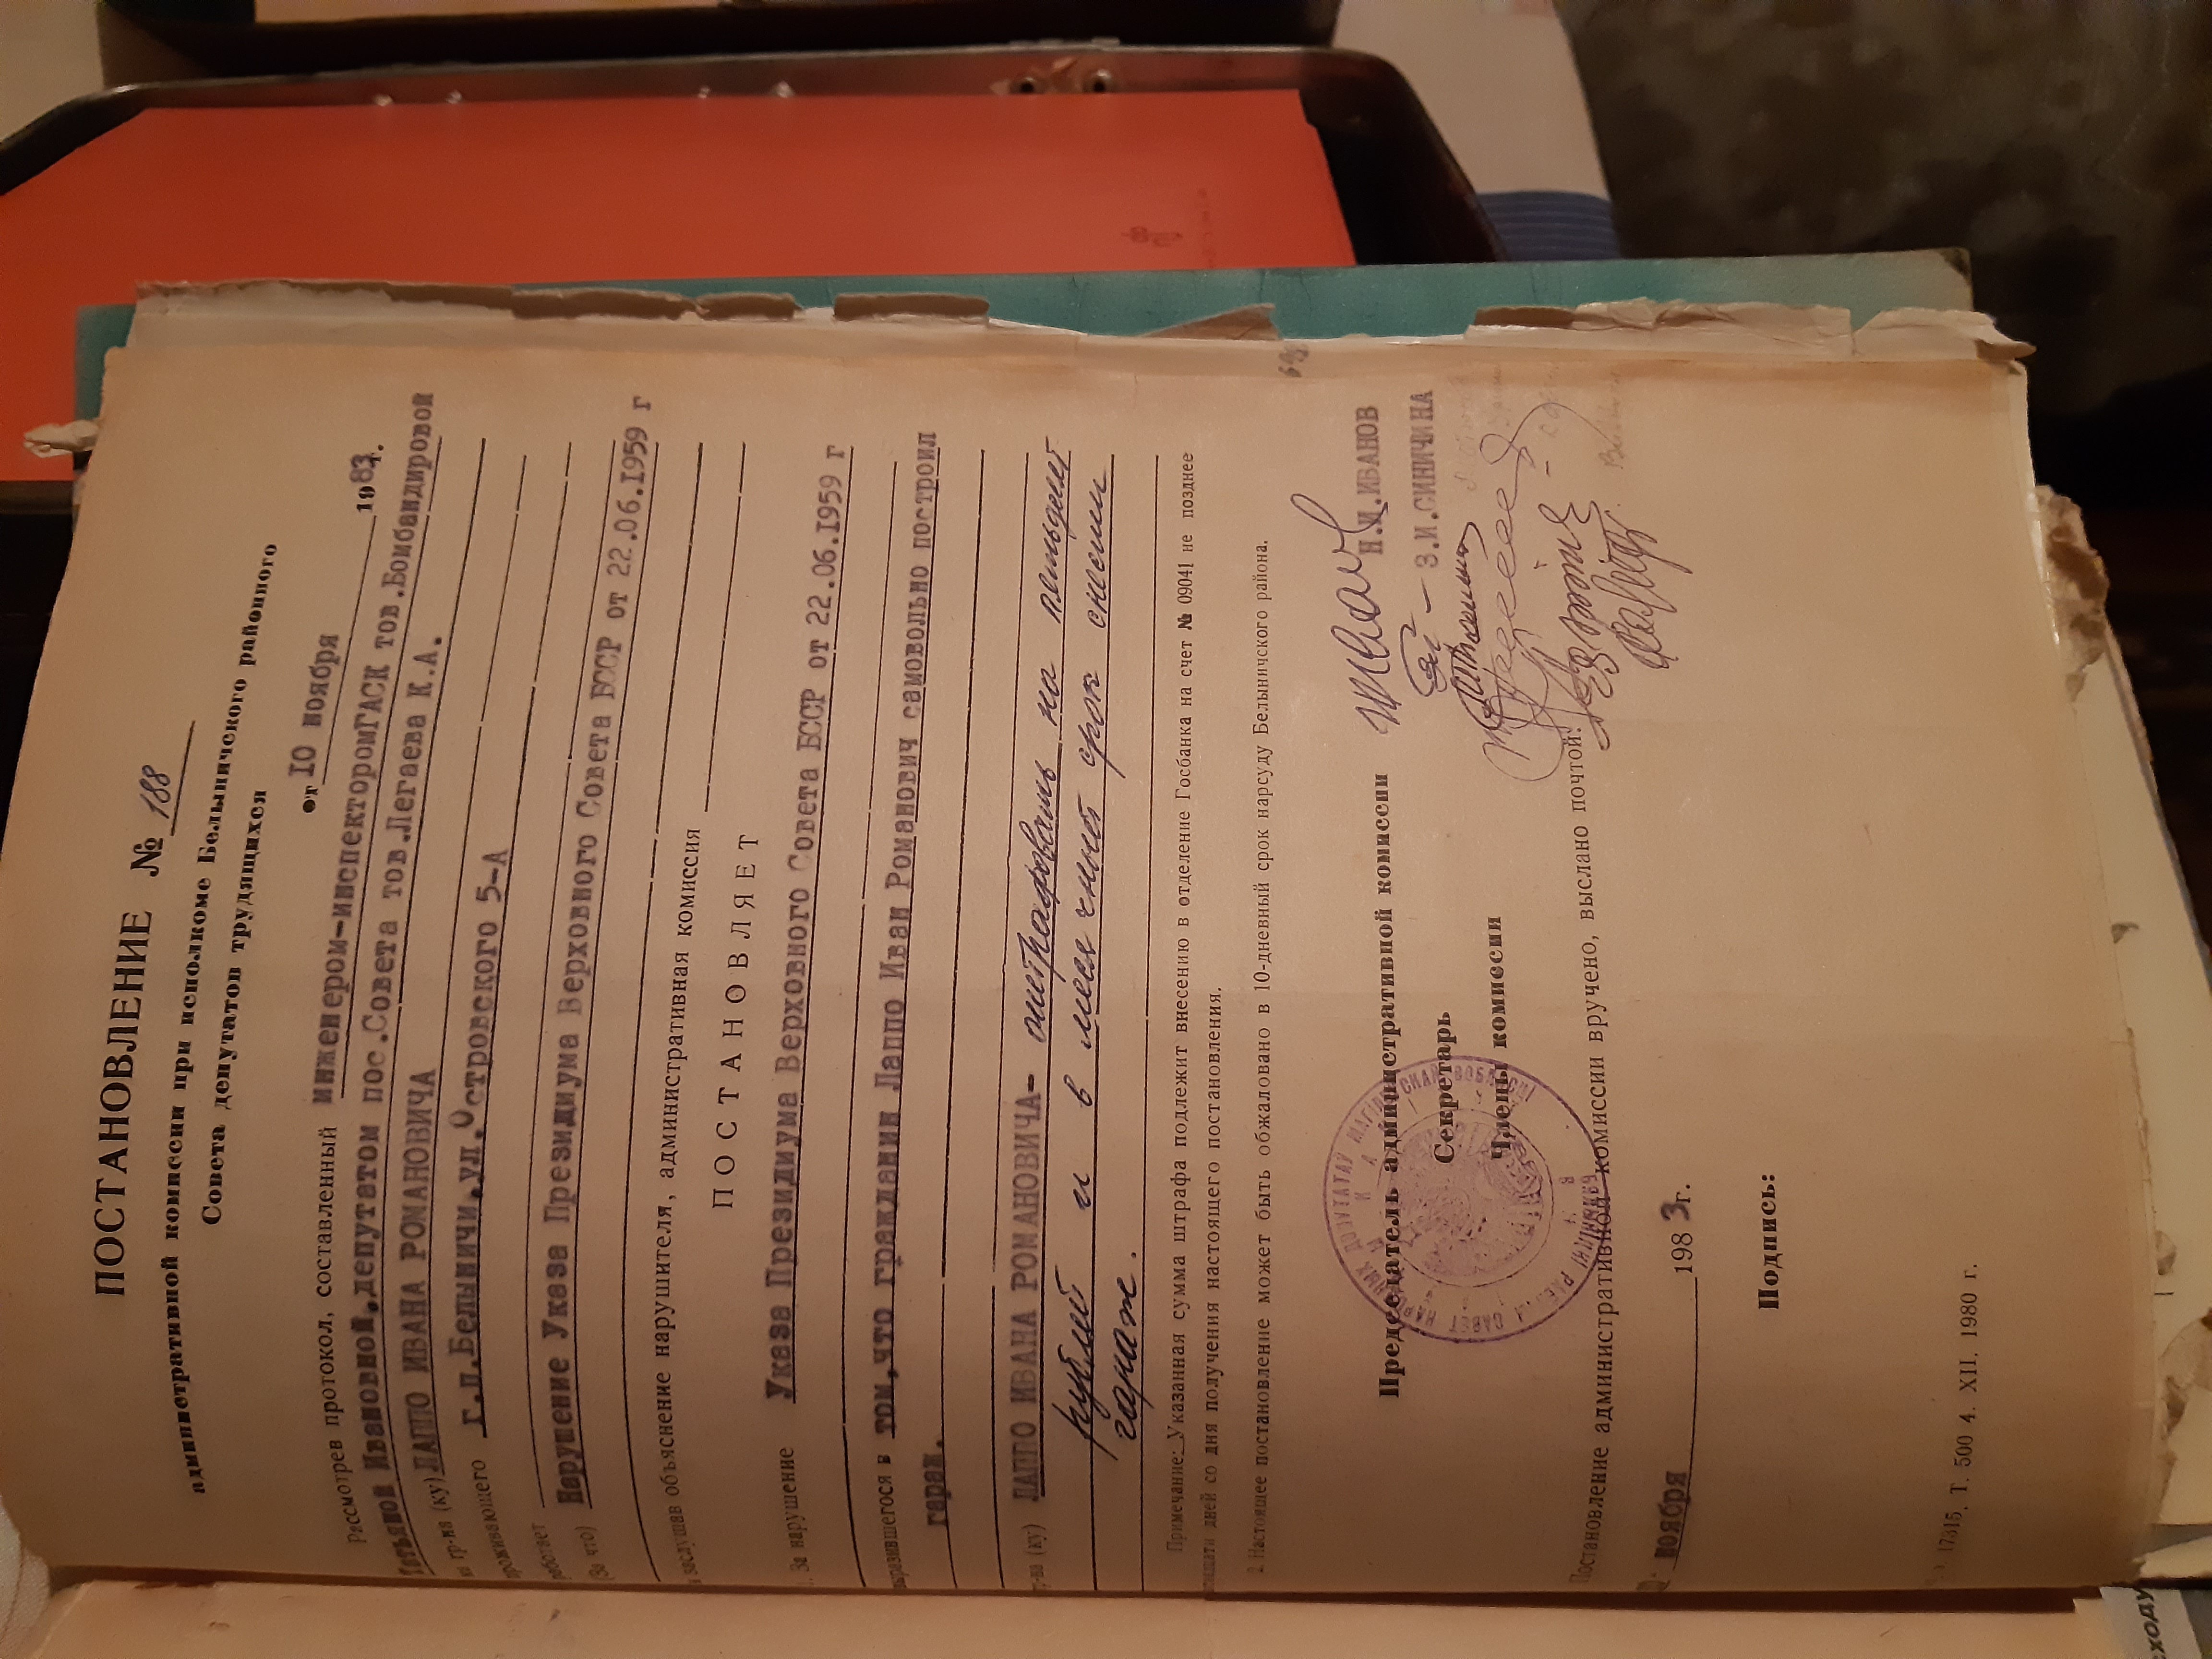 ПОСТАНОВЛЕНИЕ № 188
административной комиссии при исполкоме Белыничского районного
Совета депутатов трудящихся
от 10 ноября 1983г.
Рассмотрев протокол, составленный инженером-инспекторомГАСК тов.Бомбандировой
Татьяной Ивановной,депутатом пос.Совета тов.Легаева К.А.
на гр-на (ку) ЛАППО ИВАНА РОМАНОВИЧА
проживающего г.п.Белыничи.ул.Островского 5-А
работает
(За что) Нарушение Указа Президиума Верховного Совета БССР от 22.06.1959 г
заслушав объяснение нарушителя, административная комиссия
ПОСТАНОВЛЯЕТ
. За нарушение Указа Президиума Верховного Совета БССР от 22.06.1959 г
выразившегося в том,что гражданин Лаппо Иван Романович самовольно построил
гараж.
гр-на (ку) ЛАППО ИВАНА РОМАНОВИЧА- оштрафовать на пятьдесят
рублей и в месячный срок снести
гараж.
Примечание: Указанная сумма штрафа подлежит внесению в отделение Госбанка на счет № 09041 не позднее
дней со дня получения настоящего постановления.
2. Настоящее постановление может быть обжаловано в 10-дневный срок нарсуду Белынического района.
Председатель административной комиссии Н.И.ИВАНОВ
Секретарь З.И.СИНИЧИНА
Члены комиссии
Постановление административной комиссии вручено, выслано почтой:
ноября 1983г.
Подпись:
17315. Т. 500 4. XII. 1980 г.